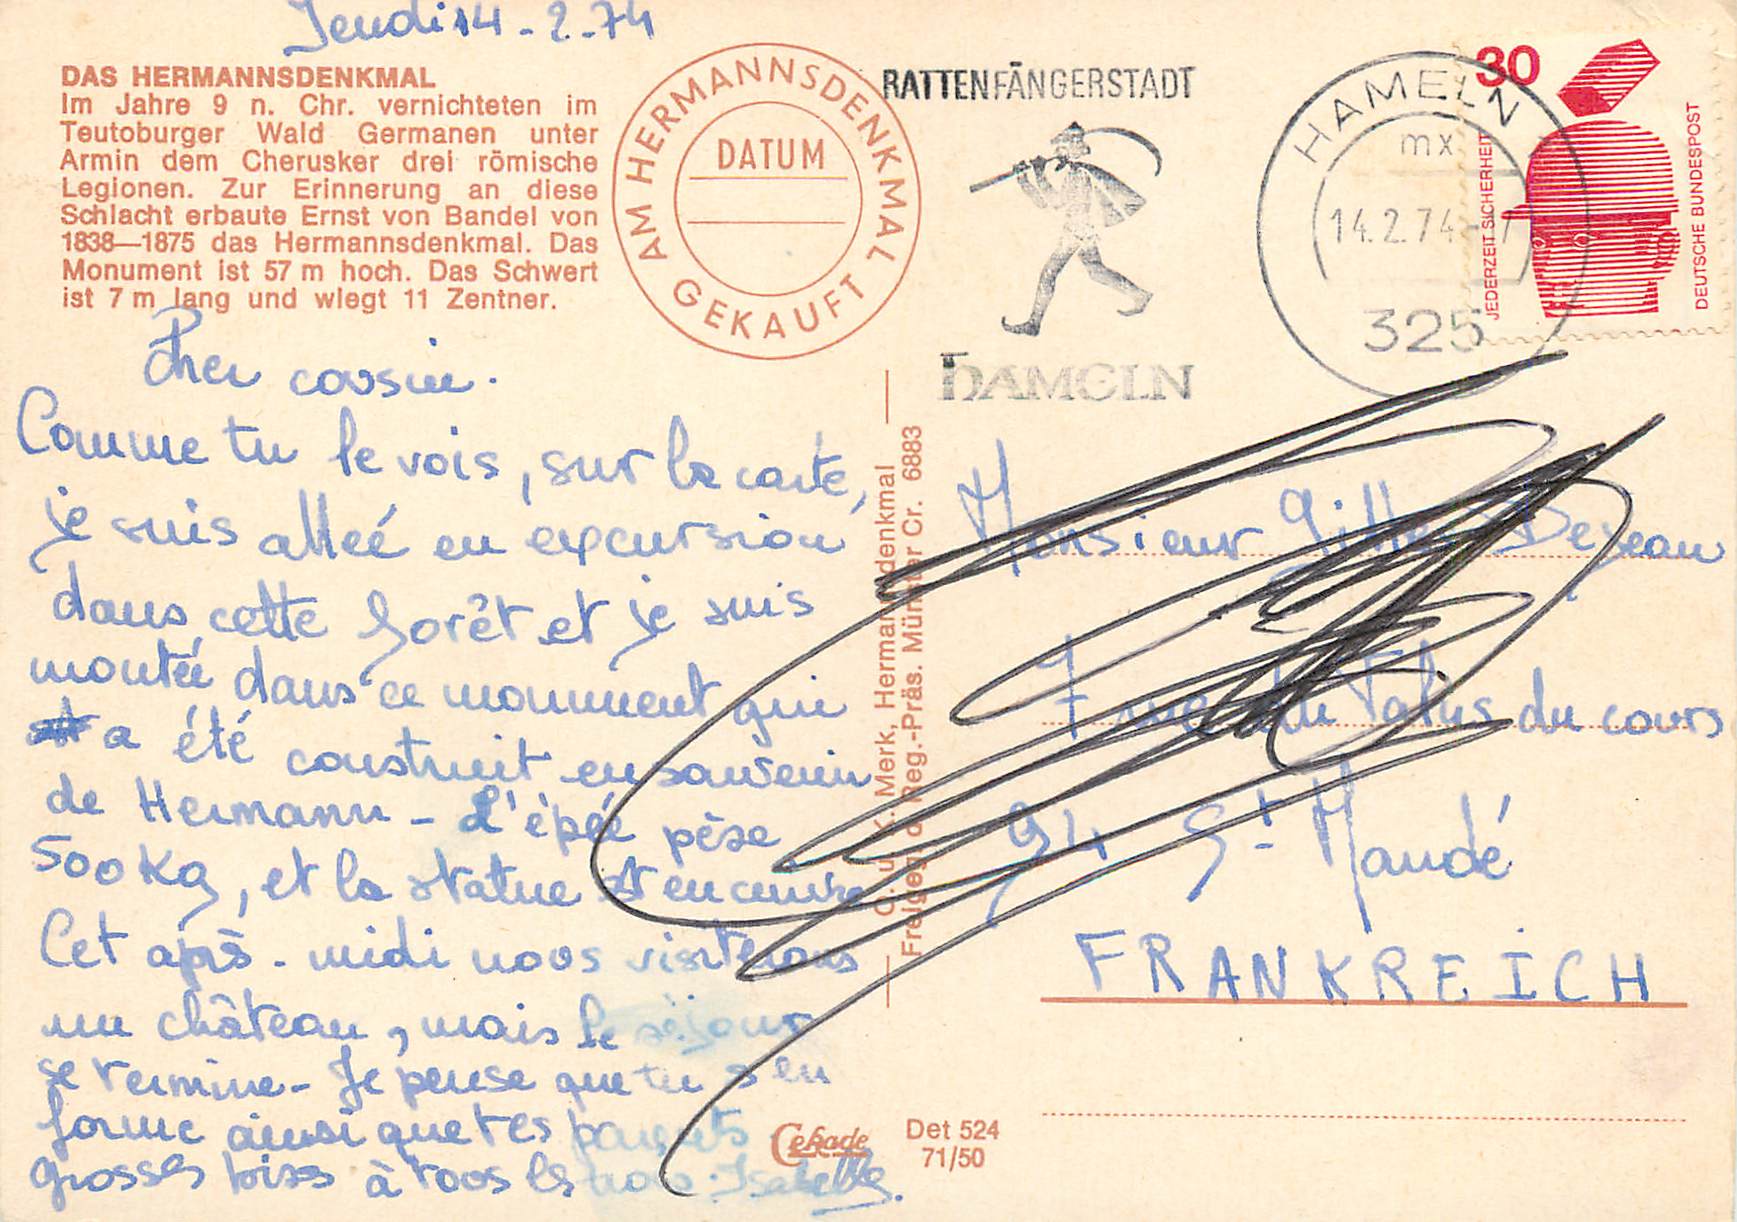 Jeudi 14-2-74
DAS HERMANNSDENKMAL
Im Jahre 9 n. Chr. vernichteten im
Teutoburger Wald Germanen unter
Armin dem Cherusker drei römische
Legionen. Zur Erinnerung an diese
Schlacht erbaute Ernst von Bandel von
1838—1875 das Hermannsdenkmal. Das
Monument ist 57 m hoch. Das Schwert
ist 7 m lang und wiegt 11 Zentner.
AM HERMANNSDENKMAL
GEKAUFT
DATUM
RATTENFÄNGERSTADT
HAMELN
HAMELN
mx
14.2.74-
325
30
JEDERZEIT SICHERHEIT
DEUTSCHE BUNDESPOST
Cher cousin.
Comme tu le vois, sur la carte,
je suis alleé en excursion
dans cette forêt et je suis
montée dans ce monument qui
a été construit en souvenir
de Hermann - L'épée pèse
500 Kg, et la statue est en cuivre
Cet après-midi nous visiterons
un château, mais le séjour
se termine - Je pense que tu s en
forme ainsi que tes parents
grosses biss à tous les trois. Isabelle.
C. u. K. Merk, Hermannsdenkmal
Freigeg. d. Reg.-Präs. Münster Cr. 6883
Monsieur Gilles
7 rue du Talus du cours
94 St Mandé
FRANKREICH
Cekade
Det 524
71/50